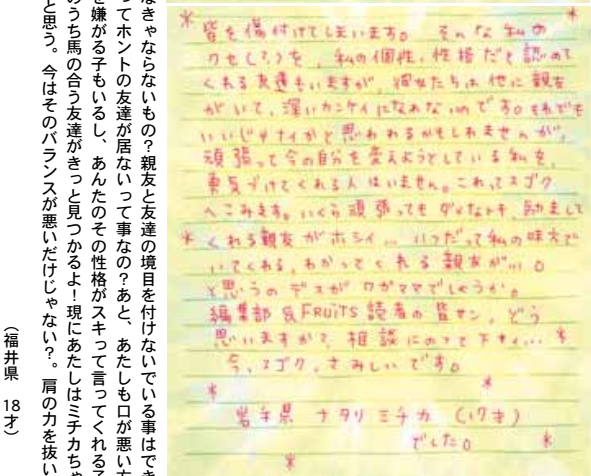 皆を傷付けてしまいます。そんな私の
クセ(?)を、私の個性、性格だと認めて
くれる友達もいますが、彼女たちは他に親友
がいて、深いカンケイになれないのです。それでも
いいじゃナイかと思われるかもしれませんが、
頑張って今の自分を変えようとしている私を、
勇気づけてくれる人はいません。これってスゴク
へこみます。いくら頑張ってもダメなトキ、励まして
くれる親友がホシイ...いつだって私の味方で
いてくれる、わかってくれる親友が...。
と思うのデスがワガママでしょうか。
編集部&FRUiTS読者の皆サン、どう
思いますか?、相談にのって下サイ...
今、スゴク、さみしいです。
岩手県 ナタリミチカ (17才)
でした。
なきゃならないもの?親友と友達の境目を付けないでいる事はでき
ってホントの友達が居ないって事なの?あと、あたしも口が悪い方
を嫌がる子もいるし、あんたのその性格がスキって言ってくれる子
のうち馬の合う友達がきっと見つかるよ!現にあたしはミチカちゃ
と思う。今はそのバランスが悪いだけじゃない?。肩の力を抜い
(福井県 18才)